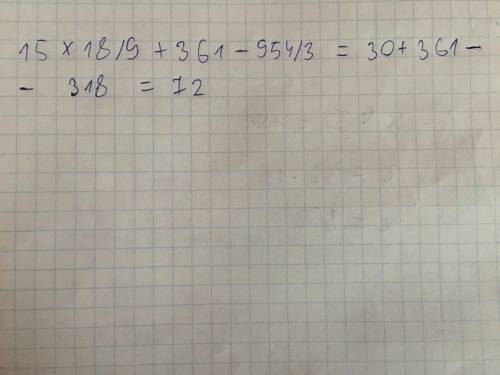 15 × 18/9 + 361 - 954/3 = 30 + 361 -
- 318 = 72